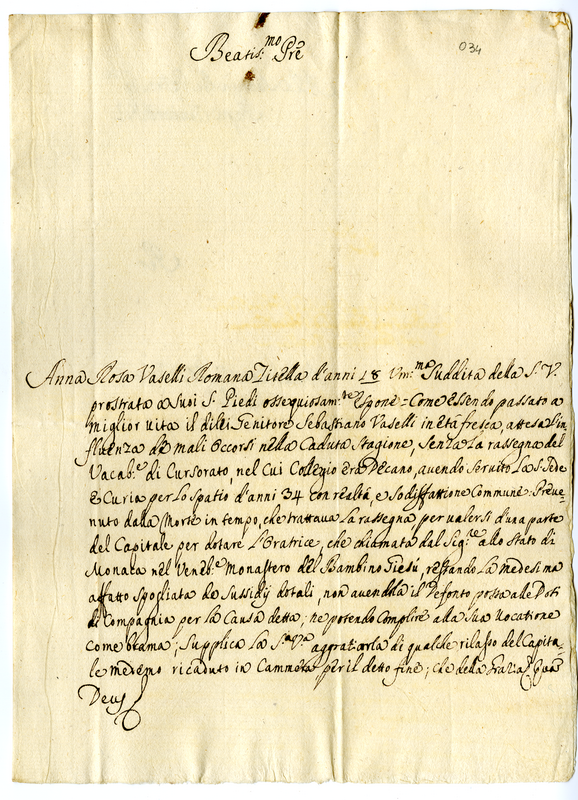 Beatis:mo Prẽ
034
Anna Rosa Vaselli Romana Zitella d'anni 18 Um:ma Suddita della S.V.
prostrata a Suoi S. Piedi ossequiosam:te Espone = Come essendo passato a
miglior vita il di lei Genitore Sebastiano Vaselli in età fresca, attesa l'in
fluenza de mali occorsi nella Caduta Stagione, senza la rassegna del
Vacab:e di Cursorato, nel Cui Collegio era Decano, avendo servito la S. Sede
e Curia per lo spatio d'anni 34 con realtà, e sodisfattione Commune: Preve-
nuto dalla Morte in tempo, che trattava la rassegna per valersi d'una parte
del Capitale per dotare l'Oratrice, che chiamata dal Sig:re allo Stato di
Monaca nel Ven:e Monastero del Bambino Giesù, restando la medesima
affatto spogliata de Sussidij dotali, non avendola il Defonto posta alle Doti
di Compagnia per la Causa detta; ne potendo Complire alla Sua Vocatione
come brama; Supplica la S.tà V.ra aggratiarla di qualche rilasso del Capita-
le medemo ricaduto in Cammera per il detto fine; che della Graz:a
Deus